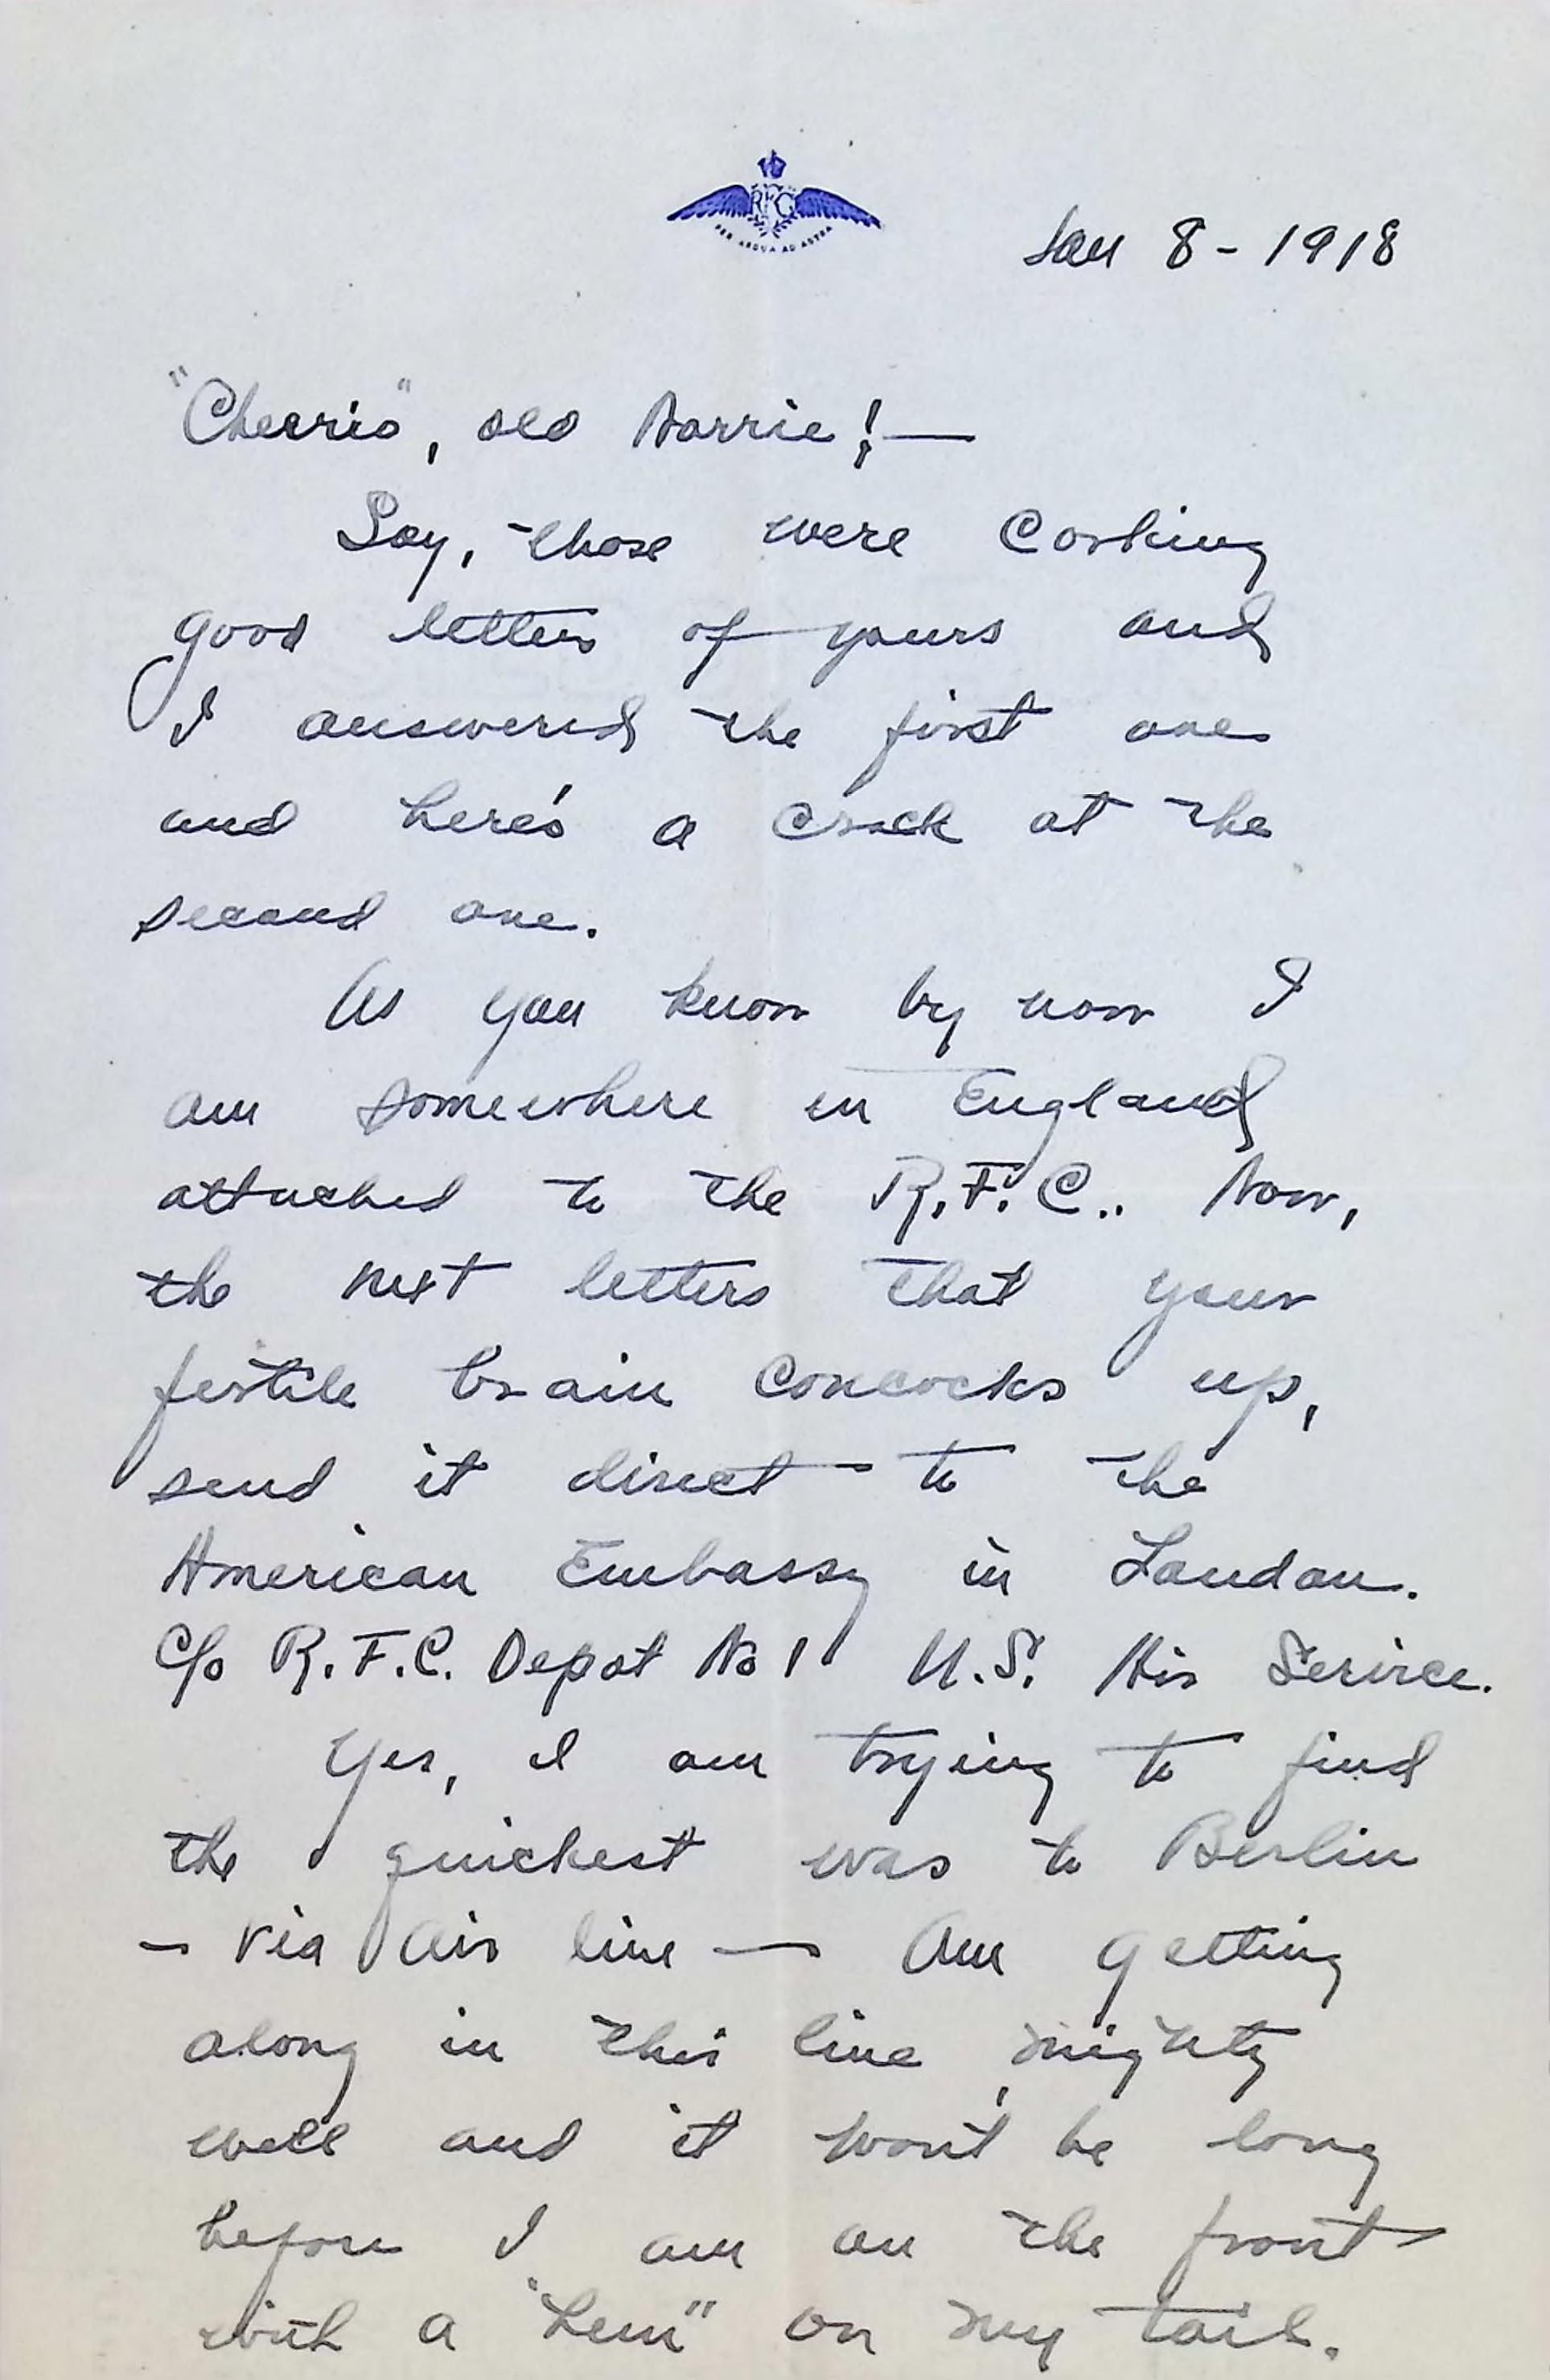 RFC
PER ARDUA AD ASTRA
Jan 8 - 1918
"Cheerio", old Norrie! —
Say, those were Corking
good letters of yours and
I answered the first one
and here's a crack at the
second one.
As you know by now I
am somewhere in England
attached to the R.F.C.. Now,
the next letters that your
fertile brain concocks up,
send it direct to the
American Embassy in London.
C/o R.F.C. Depot No 1 U.S. Air Serivce.
Yes, I am trying to find
the quickest was to Berlin
— via Air line — Am getting
along in this line, mighty
well and it won't be long
before I am on the front
with a "hun" on my tail.